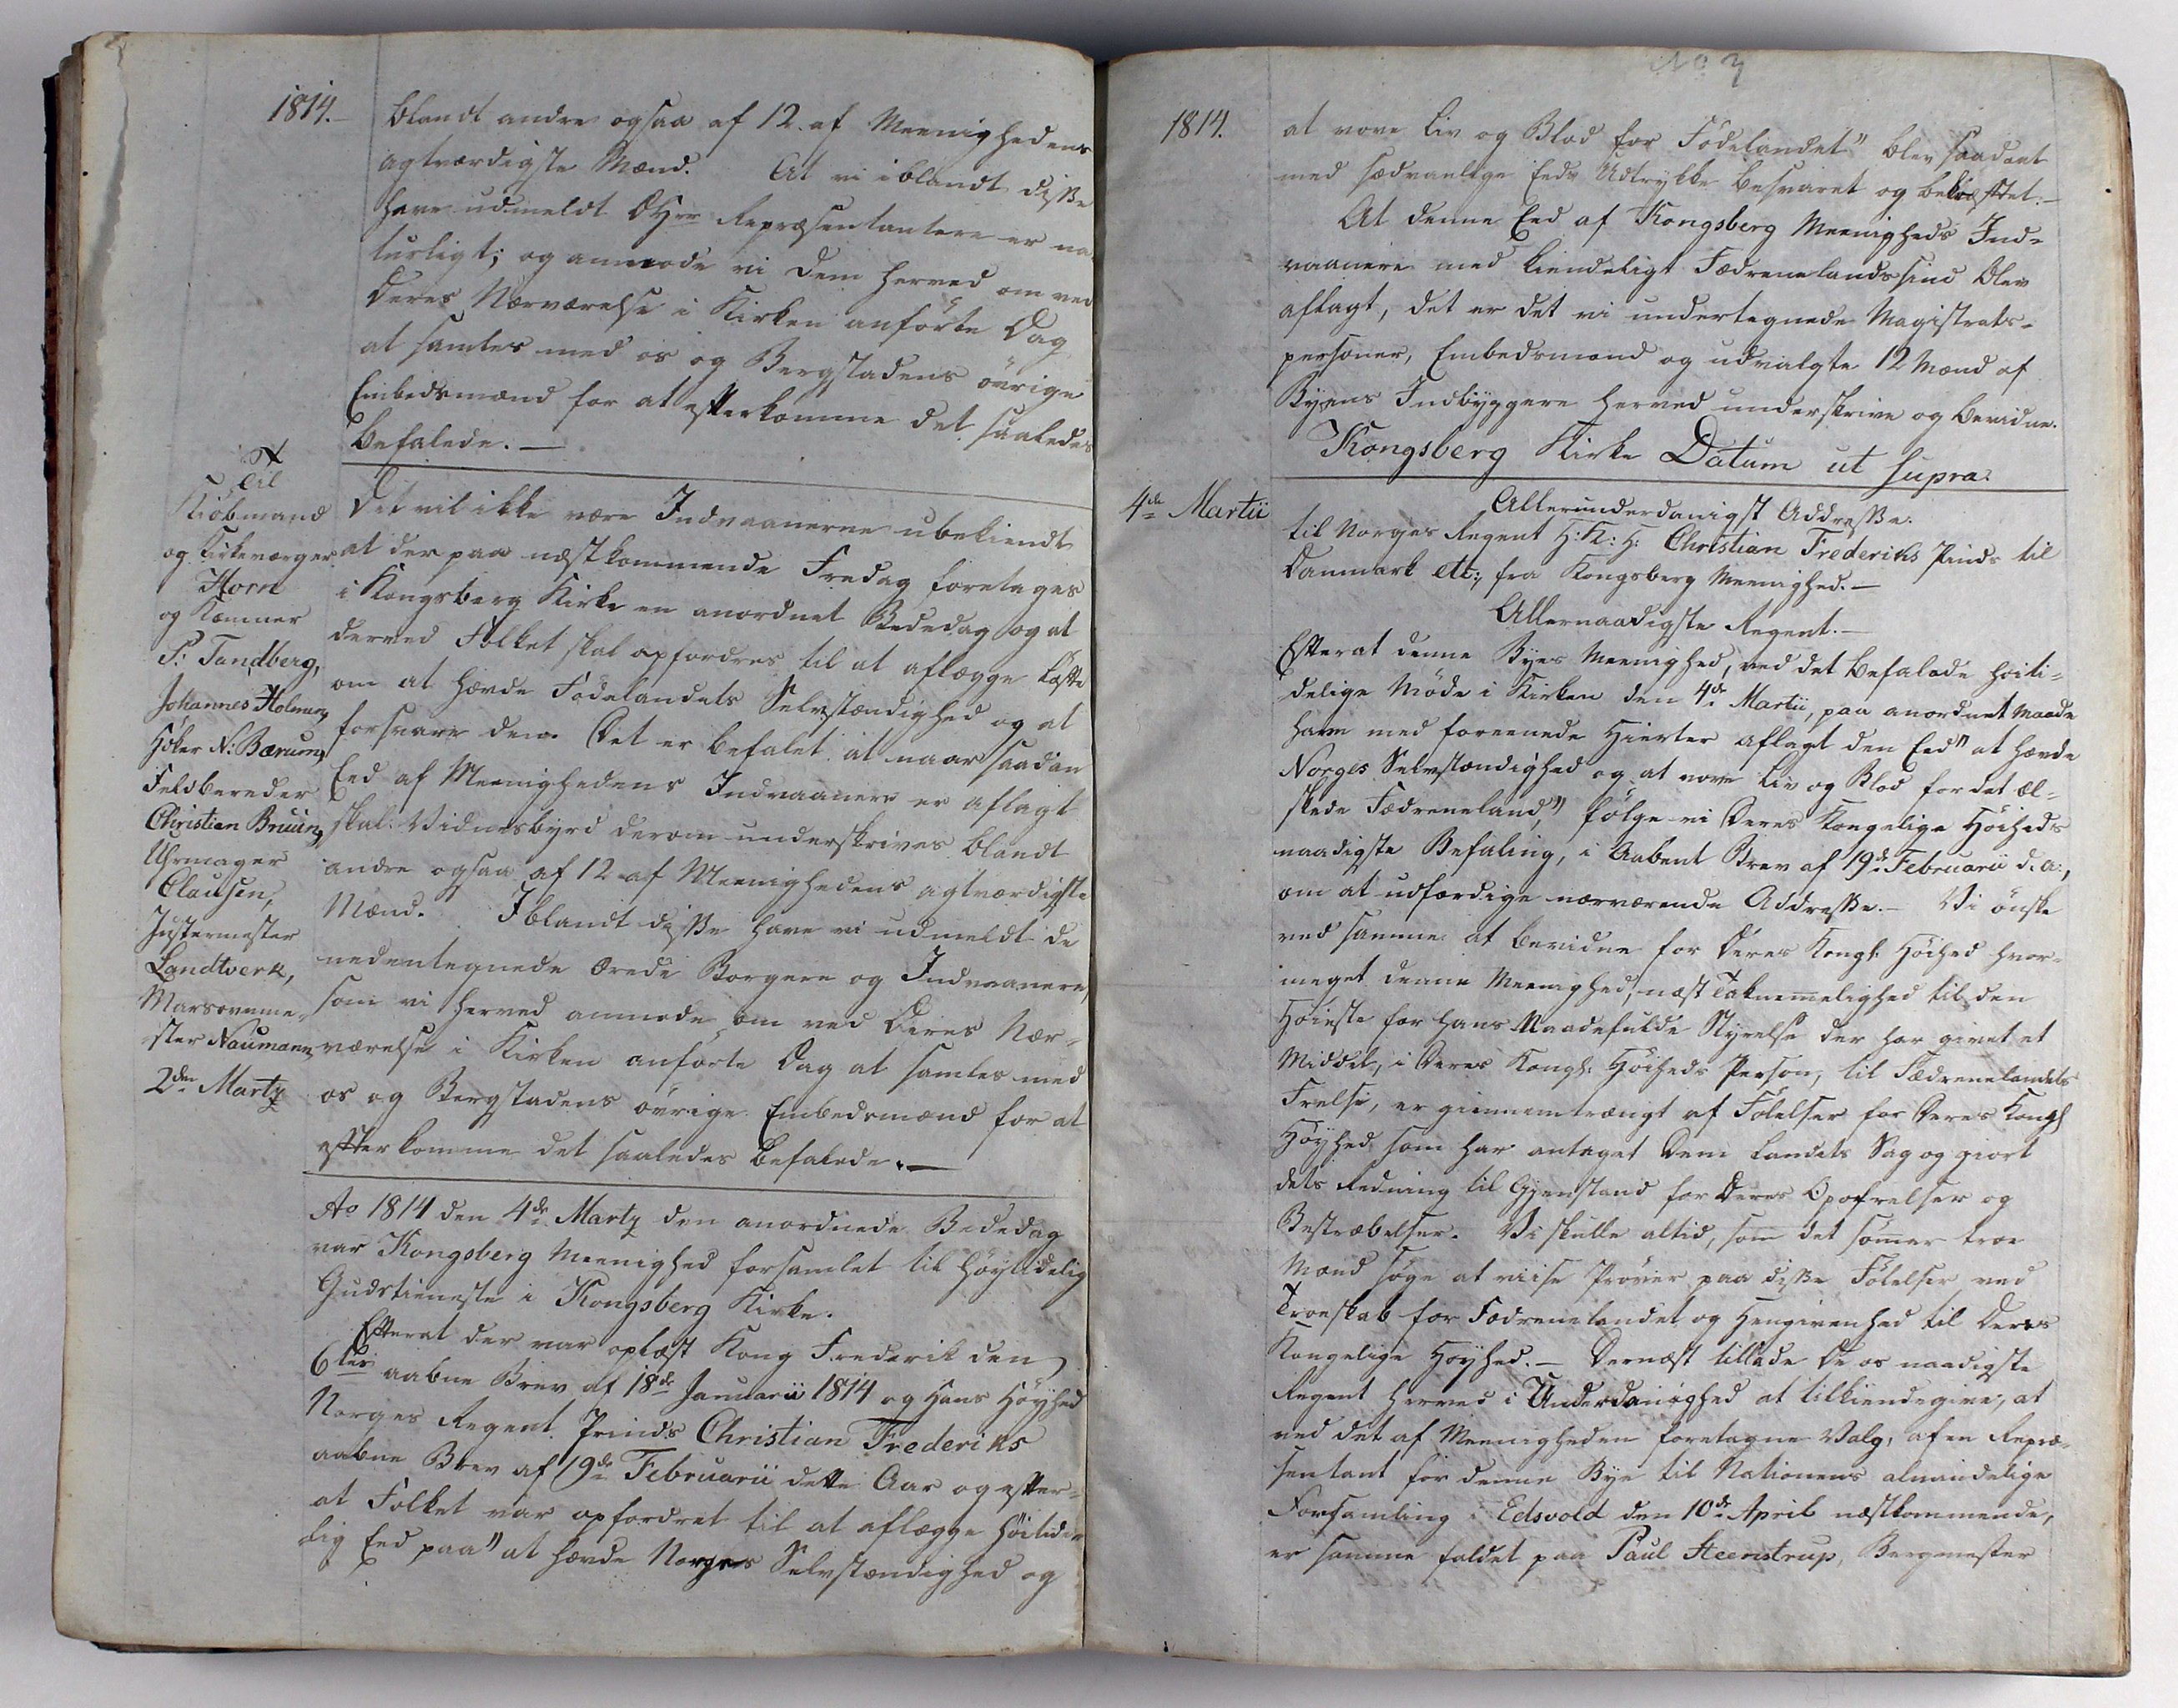 1814.
blandt andre ogsaa af 12 af Meenighedens
agtværdigste Mænd. At vi iblandt disse
have udmeldt DHrr Repræsentantere er na
turligt; og anmode vi dem herved om ved
deres Nærværelse i Kirken anførte Dag
at samles med os og Bergstadens øvrige
Embedsmænd for at efterkomme det saaledes
befalede.—
Til
Kiöbmand
og Kirkeværger
Horn
og Kæmner
P: Tandberg,
Johannes Holmen,
Höker N: Bærum,
Feldbereder
Christian Bruun,
Uhrmager
Clausen,
Justermester
Landtverk,
Marsovnme-
ster Naumann
2den Martz
Det vil ikke være Indvaanerne ubekiendt
at der paa næstkommende Fredag foretages
i Kongsberg Kirke en anordnet Bededag og at
derved Folket skal opfordres til at aflægge Løfte
om at hævde Fødelandets Selvstændighed og at
forsvare den. Det er befalet at naar saadan
Eed af Meenighedens Indvaanere er aflagt
skal Vidnesbyrd derom underskrives blandt
andre ogsaa af 12 af Meenighedens agtværdigste
Mænd. Iblandt disse have vi udmeldt de
nedentegnede ærede Borgere og Indvaanere,
som vi herved anmode om ved Deres Nær-
værelse i Kirken anførte Dag at samles med
os og Bergstadens øvrige Embedsmænd for at
efterkomme det saaledes befalede.—
Ao 1814 den 4de Martz den anordnede Bededag
var Kongsberg Meenighed forsamlet til høytidelig
Gudstieneste i Kongsberg Kirke.
Efterat der var oplæst Kong Frederik den
6tes aabne Brev af 18de Januarii 1814 og Hans Høyhed
Norges Regent Prinds Christian Frederiks
aabne Brev af 19de Februarii dette Aar og efter-
at Folket var opfordret til at aflægge høitide
lig Eed paa" at hævde Norges Selvstændighed og
No 7
1814.
at vove Liv og Blod for Födelandet" blev saadant
med sædvanlige Eeds Udtrykke besvaret og bekræftet.—
At denne Eed af Kongsberg Meenigheds Ind-
vaanere med kiendeligt Fædrenelandssind blev
aflagt, det er det vi undertegnede Magistrats-
personer, Embedsmænd og udvalgte 12 Mænd af
Byens Indbyggere herved underskrive og bevidne.
Kongsberg Kirke Datum ut supra.
4de Martii
Allerunderdanigst Addresse.
til Norges Regent H: K: H: Christian Frederiks Prinds til
Danmark etc:, fra Kongsberg Meenighed.—
Allernaadigste Regent.—
Efterat denne Byes Meenighed, ved det befalede høiti-
delige Møde i Kirken den 4de Martii, paa anordnet Maade
havn med foreenede Hierter aflagt den Eed" at hævde
Norges Selvstændighed og at vove Liv og Blod for det el-
skede Fædreneland," følge vi Deres Kongelige Høiheds
naadigste Befaling, i Aabent Brev af 19de Februarii d. a:,
om at udfærdige nærværende Addresse.— Vi ønske
ved samme at bevidne for Deres Kongl. Höihed hvor-
meget denne Meenighed, næst Taknemelighed til den
Høieste for hans Naadefulde Styrelse der har givet et
Middel, i Deres Kongl: Höiheds Person, til Fædrenelandets
Frelse, er giennemtrængt af Følelser for Deres Kongl
Höyhed som har antaget Dem Landets Sag og giort
dets Redning til Gjenstand for Deres Opofrelser og
Bestræbelser. Vi skulle altid, som det sømer troe
Mænd søge at viise Prøver paa disse Følelser ved
Troeskab for Fædrenelandet og Hengivenhed til Deres
Kongelige Høyhed.— Dernæst tillade De os naadigste
Regent herved i Underdanighed at tilkiendegive, at
ved det af Meenigheden foretagne Valg, af en Repræ-
sentant for denne Bye til Nationens almindelige
Forsamling i Edsvold den 10de April næstkommende,
er samme faldet paa Paul Steenstrup, Bergmester